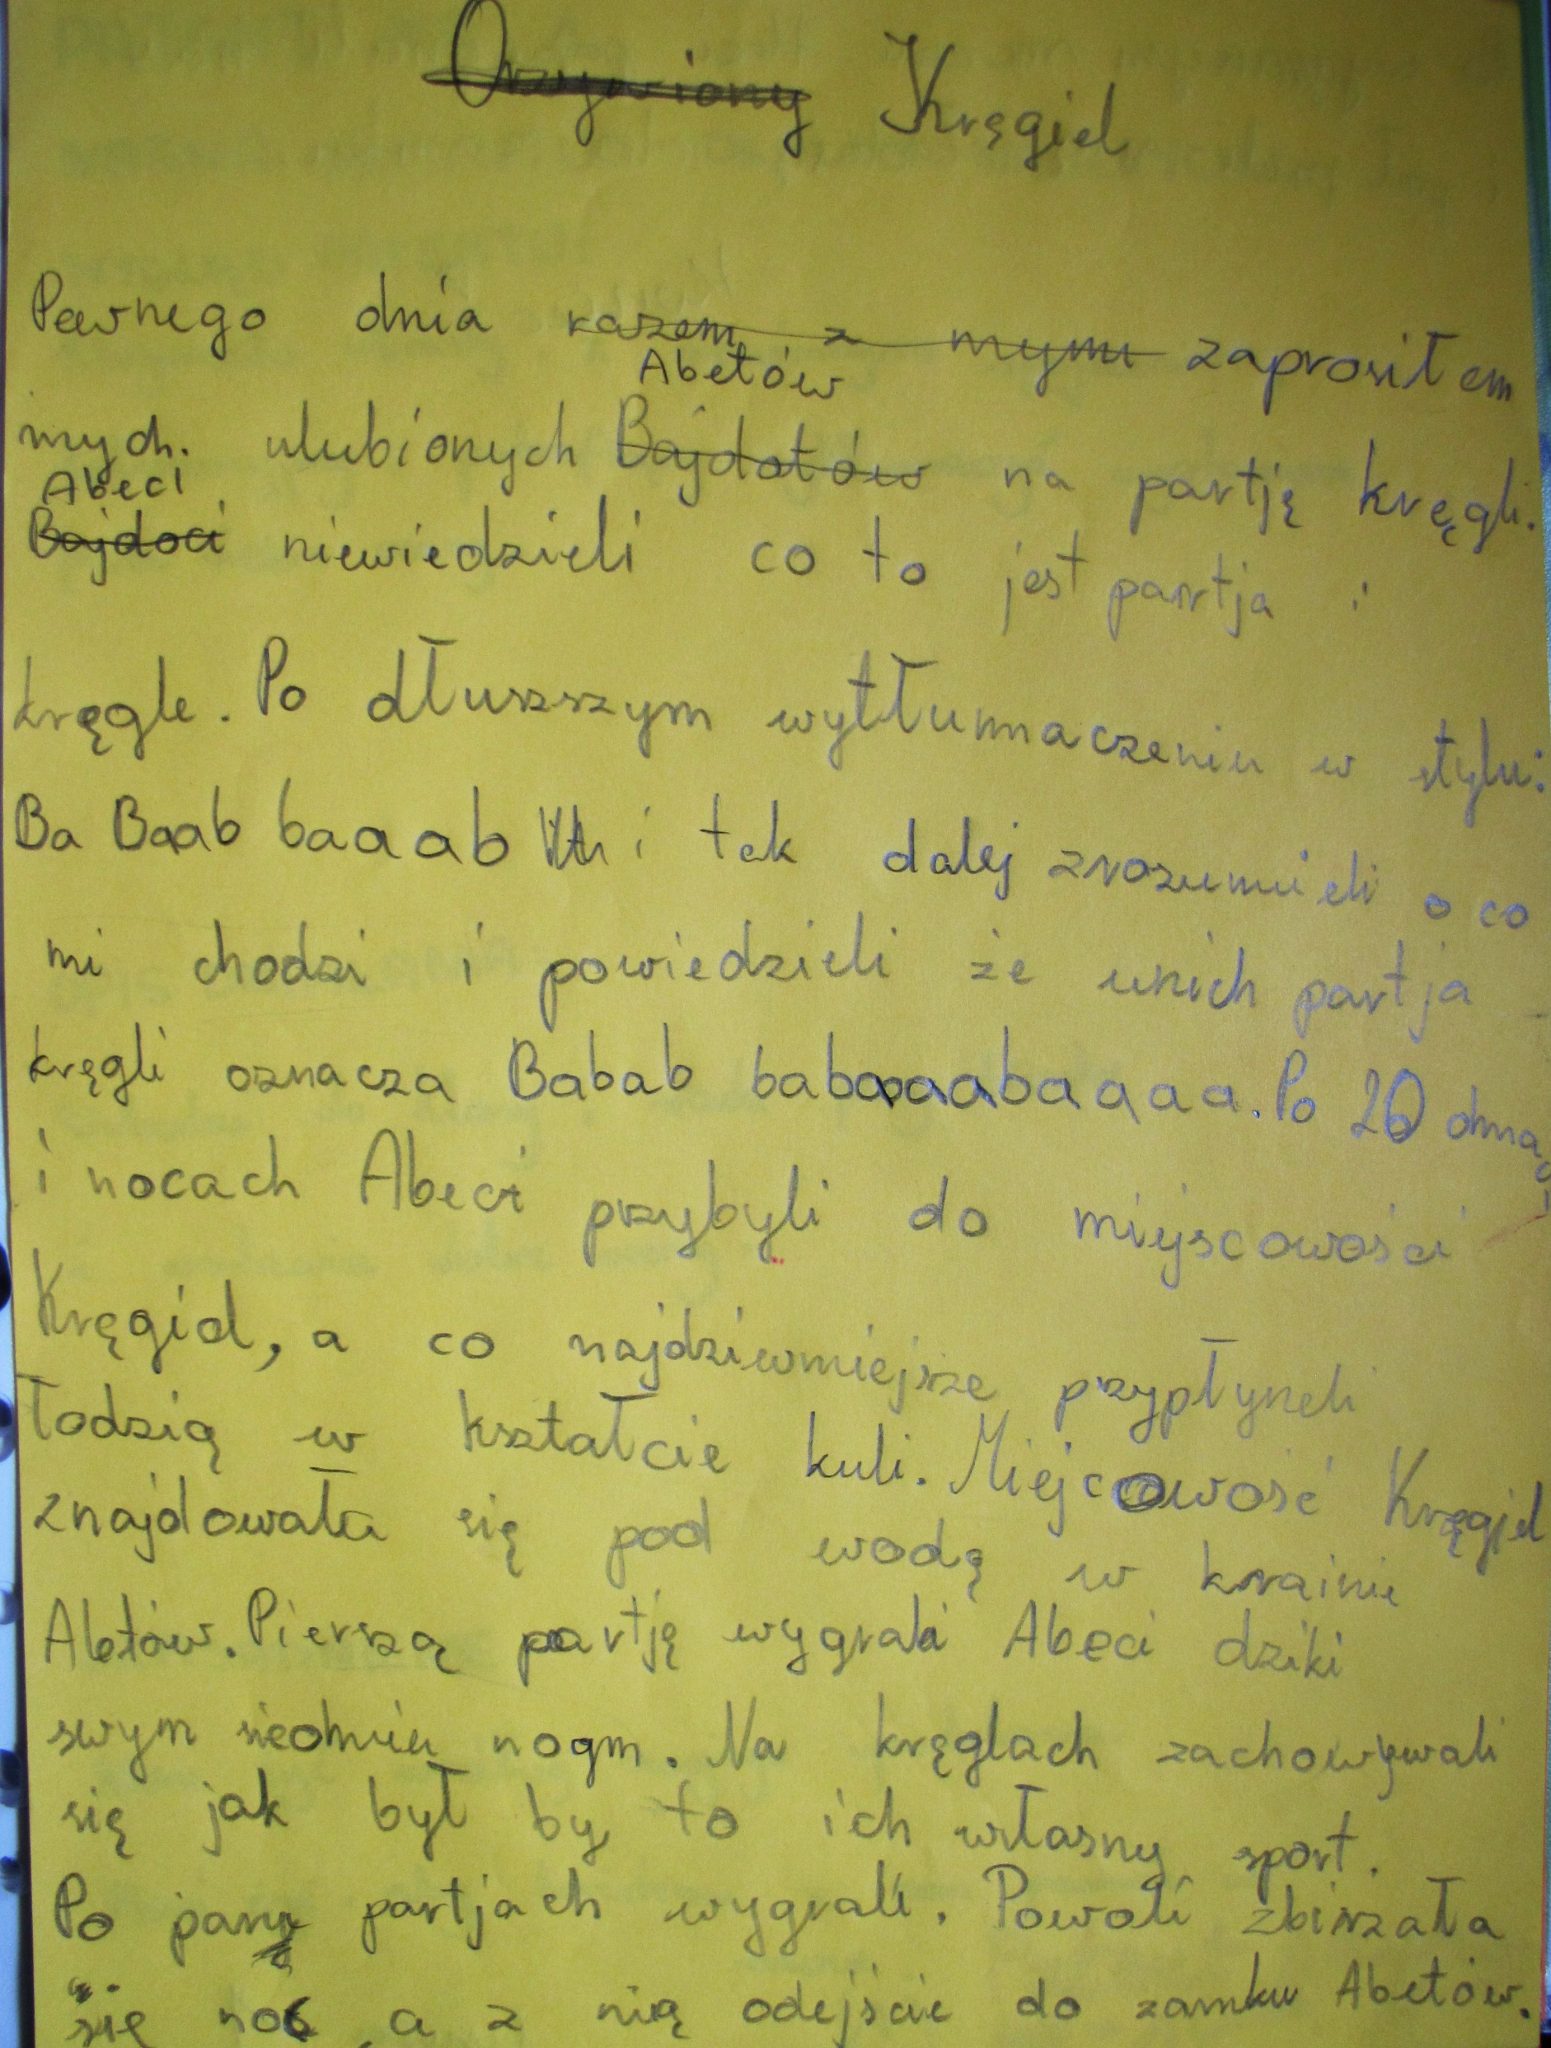 Ożywiony Kręgiel
Pewnego dnia razem z mymi zaprosiłem
Abetów
mych. ulubionych Bajdotów na partję kręgli.
Abeci
Bajdoci niewiedzieli co to jest partja i
kręgle. Po dłuszszym wytłumaczeniu w stylu:
Ba Baab baaab i tak dalej zrozumieli o co
mi chodzi i powiedzieli że unich partja
kręgli oznacza Babab babaaaabaaaa. Po 20
i nocach Abeci przybyli do miejscowości
Kręgiel, a co najdziwniejsze przypłyneli
łodzią w kształcie kuli. Miejcowość Kręgjel
znajdowała się pod wodą w krainie
Abetów. Pierszą partję wygrali Abeci dziki
swym siedmiu nogm. Na kręglach zachowywali
się jak był by to ich własny sport.
Po parę partjach wygrali. Powoli zbirzała
się noc, a z nią odejście do zamku Abetów.